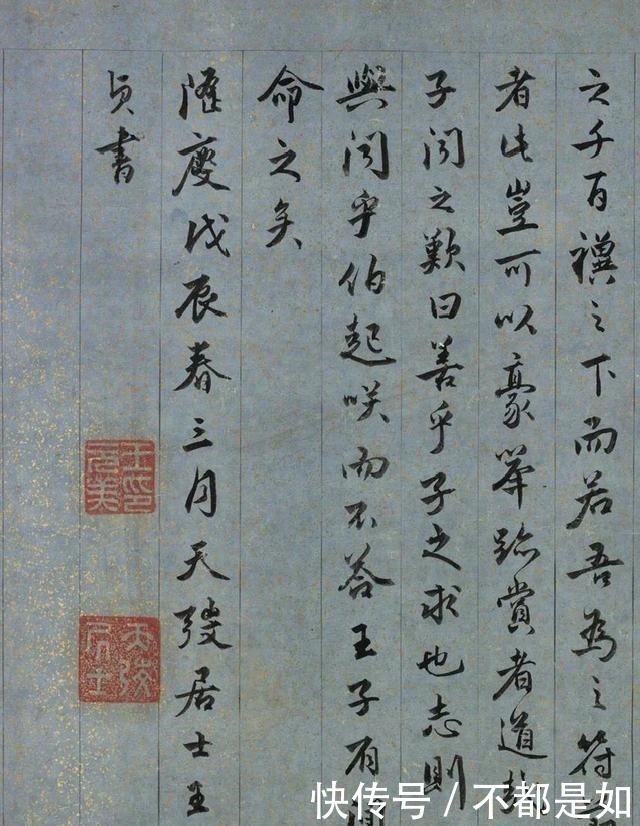 之千百禩之下而若吾為之符
者此豈可以豪舉跡賞者道
子聞之歎曰善乎子之求也志則
與聞乎伯起咲而不答王子有
命之矣
隆慶戊辰春三月天弢居士王
貞書
天弢居士
快传号 / 不都是如